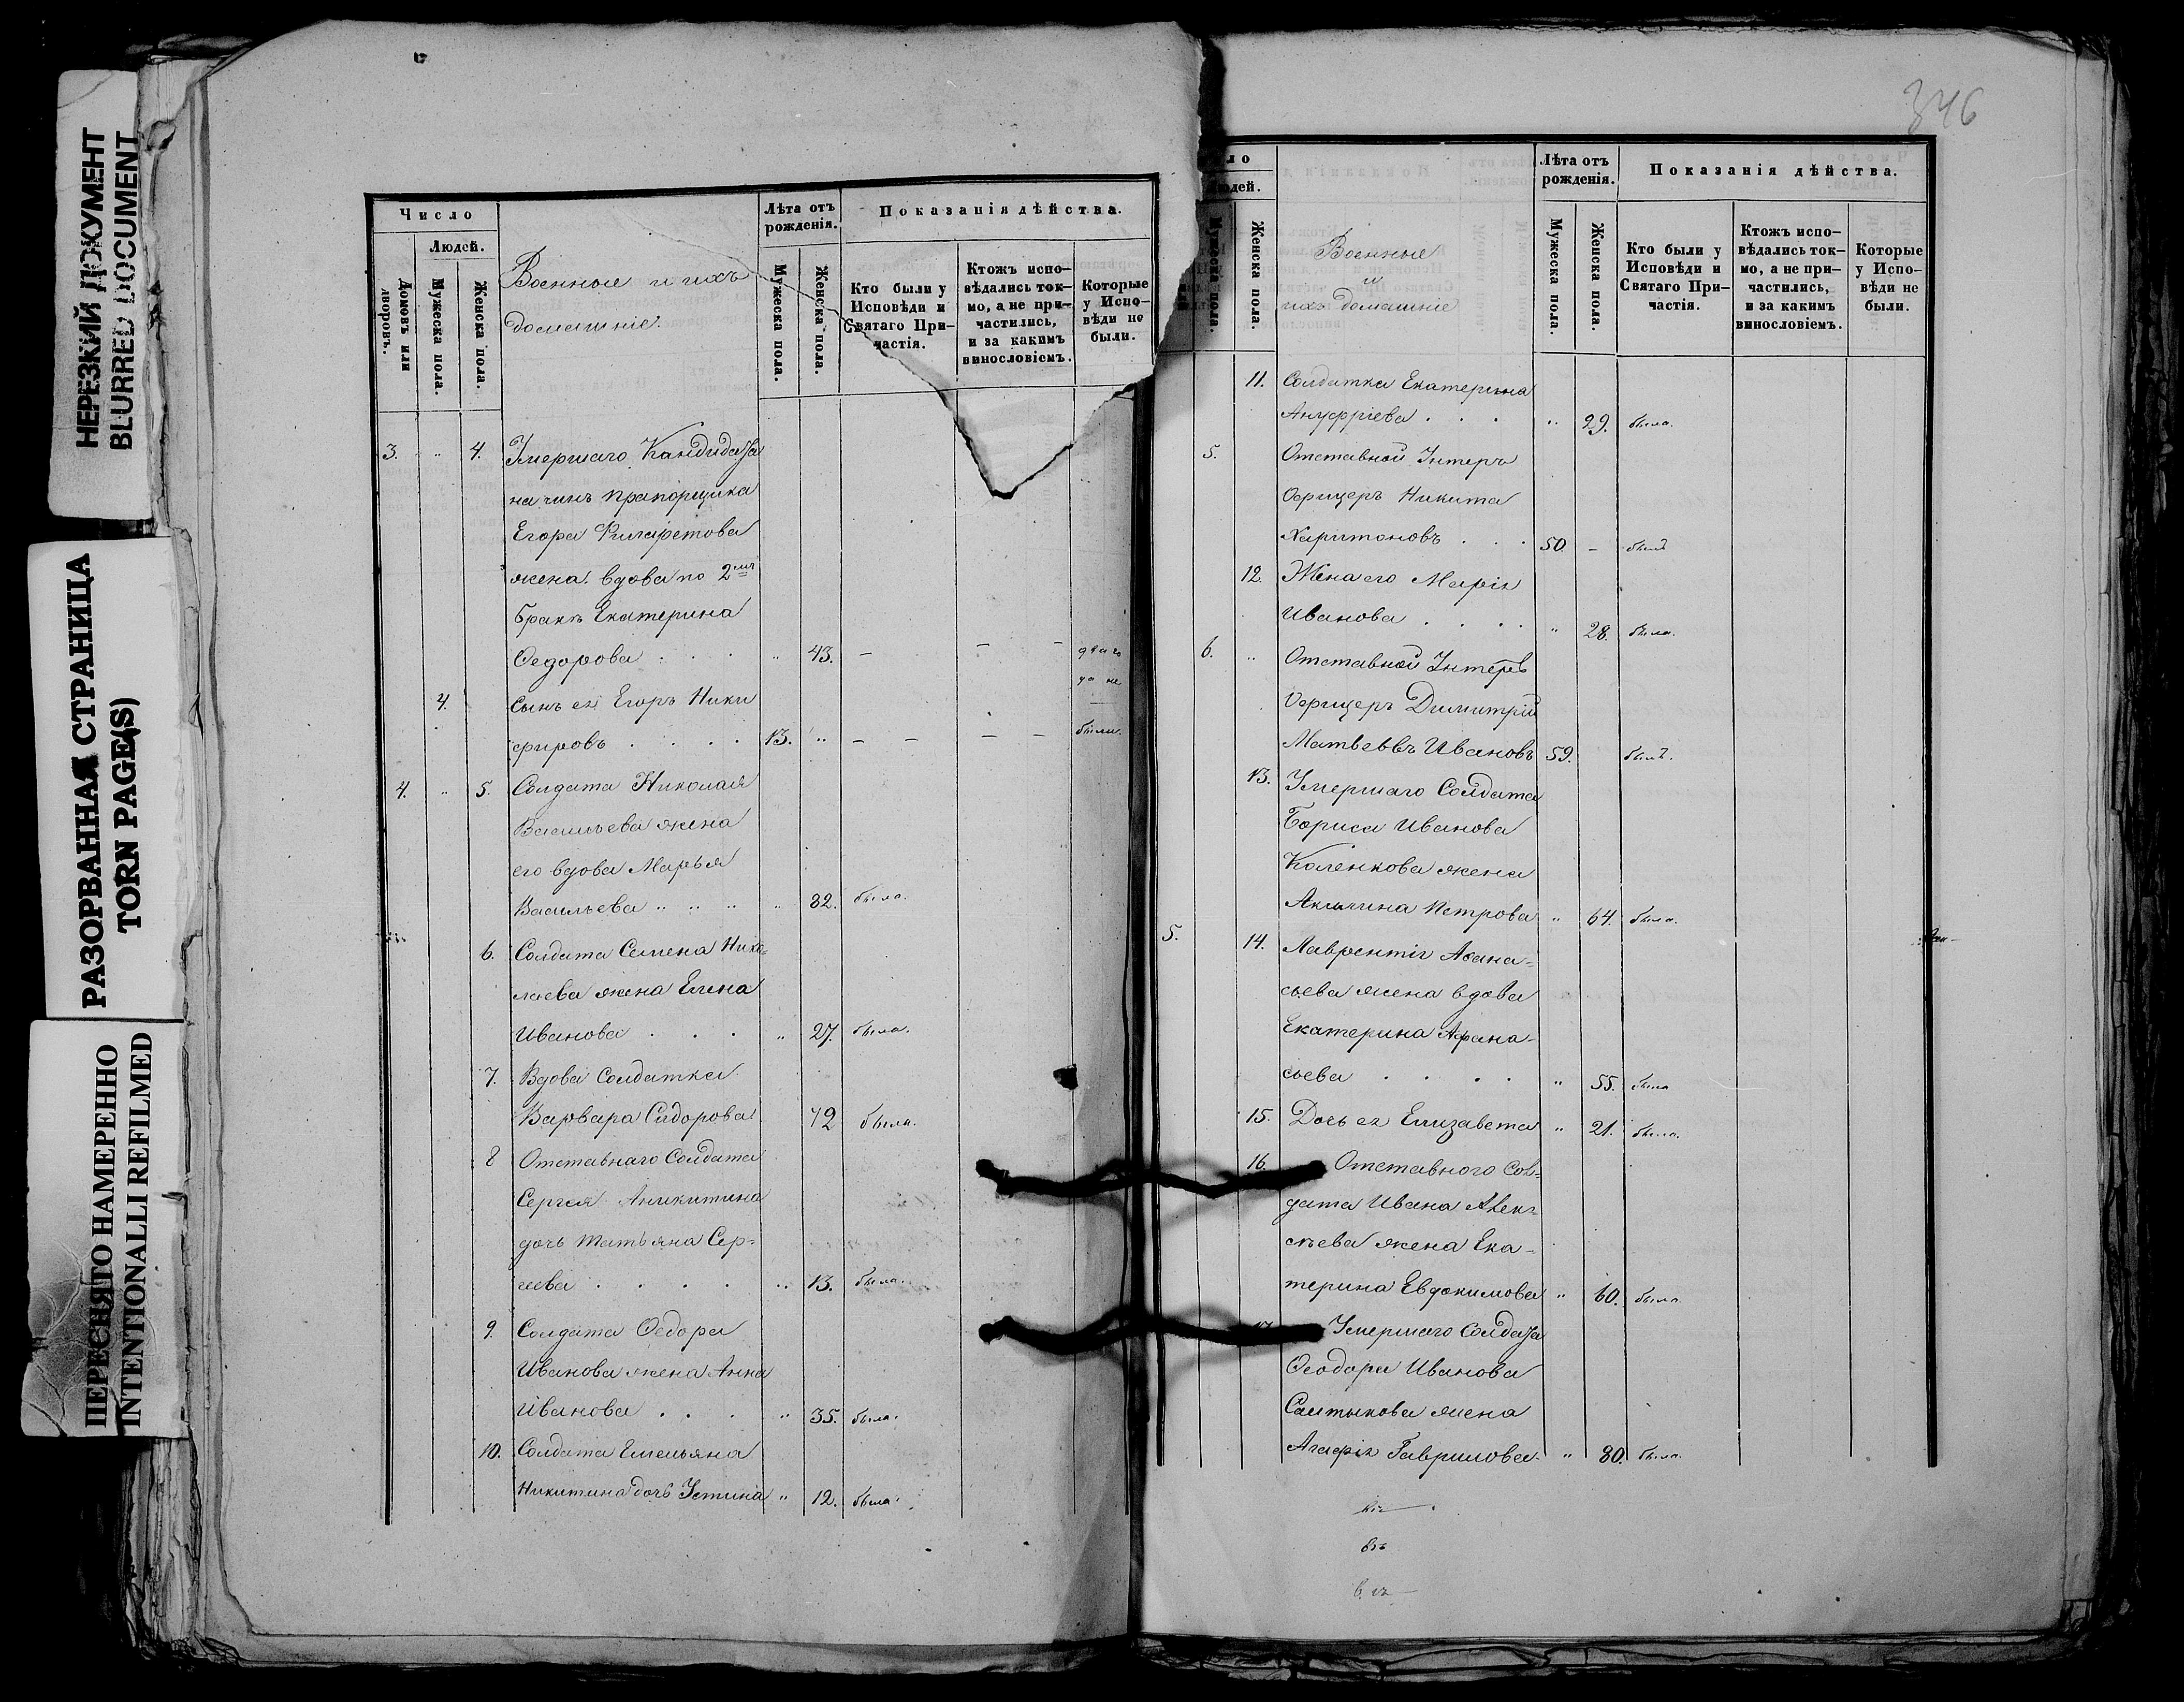 НЕРЕЗКИЙ ДОКУМЕНТ
BLURRED DOCUMENT
РАЗОРВАННАЯ СТРАНИЦА
TORN PAGE(S)
ПЕРЕСНЯТО НАМЕРЕННО
INTENTIONALLI REFILMED
Число
Людей.
Домовъ или дворовъ.
Мужеска пола.
Женска пола.
Военные и ихъ
домашніе.
Лѣта отъ
рожденія.
Мужеска пола.
Женска пола.
Показанія дѣйства.
Кто были у
Исповѣди и
Святаго При-
частія.
Ктожъ испо-
вѣдались ток-
мо, а не при-
частились,
и за какимъ
винословіемъ.
Которые
у Испо-
вѣди не
были.
3. " 4. Умершаго Кандидата
на чинъ прапорщика
Егора Филаретова
жена вдова по 2мъ
бракѣ Екатерина
Ѳедорова . . . " 43. — — —
4. Сынъ ея Егоръ Ники
фировъ . . . . 13. " — — — — были.
4. " 5. Солдата Николая
Васильева жена
его вдова Марья
Васильева " " " " 82. была.
6. Солдата Семена Нико-
лаева жена Елена
Иванова . . . " 27. была.
7. Вдова Солдатка
Варвара Сидорова 42 была.
8 Отставнаго Солдата
Сергея Аникитина
дочь Татьяна Сер-
геева . . . . " 13. была.
9. Солдата Ѳедора
Иванова жена Анна
Иванова . . . " 35. была.
10. Солдата Емельяна
Никитина дочь Устина " 12. была.
346
ло
Людей.
Мужеска пола.
Женска пола.
Военные
и
ихъ домашніе
Лѣта отъ
рожденія.
Мужеска пола.
Женска пола.
Показанія дѣйства.
Кто были у
Исповѣди и
Святаго При-
частія.
Ктожъ испо-
вѣдались ток-
мо, а не при-
частились,
и за какимъ
винословіемъ.
Которые
у Испо-
вѣди не
были.
11. Солдатка Екатерина
Ануфріева . . . " 29. была.
5. Отставной Унтеръ
Офицеръ Никита
Харитоновъ . . . 50. — былъ
12. Жена его Марія
Иванова . . . . " 28. была.
6. " Отставной Унтеръ
Офицеръ Димитрій
Матвеевъ Ивановъ 59. былъ.
13. Умершаго Солдата
Бориса Иванова
Коленкова жена
Акилина Петрова " 64. была.
5. 14. Лаврентія Аѳана-
сьева жена вдова
Екатерина Афана-
сьева . . . . " 55. была
15. Дочь ея Елизавета " 21. была.
16. Отставного Сол-
дата Ивана Алек-
сѣева жена Ека-
терина Евдокимова " 60. была.
17. Умершаго Солдата
Ѳеодора Иванова
Салтыкова жена
Агафія Гаврилова " 80. была.